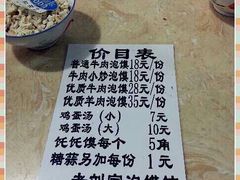 价目表
普通牛肉泡馍18元/份
牛肉小炒泡馍18元/份
优质牛肉泡馍28元/份
优质羊肉泡馍35元/份
鸡蛋汤（小） 7元
鸡蛋汤（大） 10元
饦饦馍每个 5角
糖蒜另加每份 1元
老刘家泡馍馆